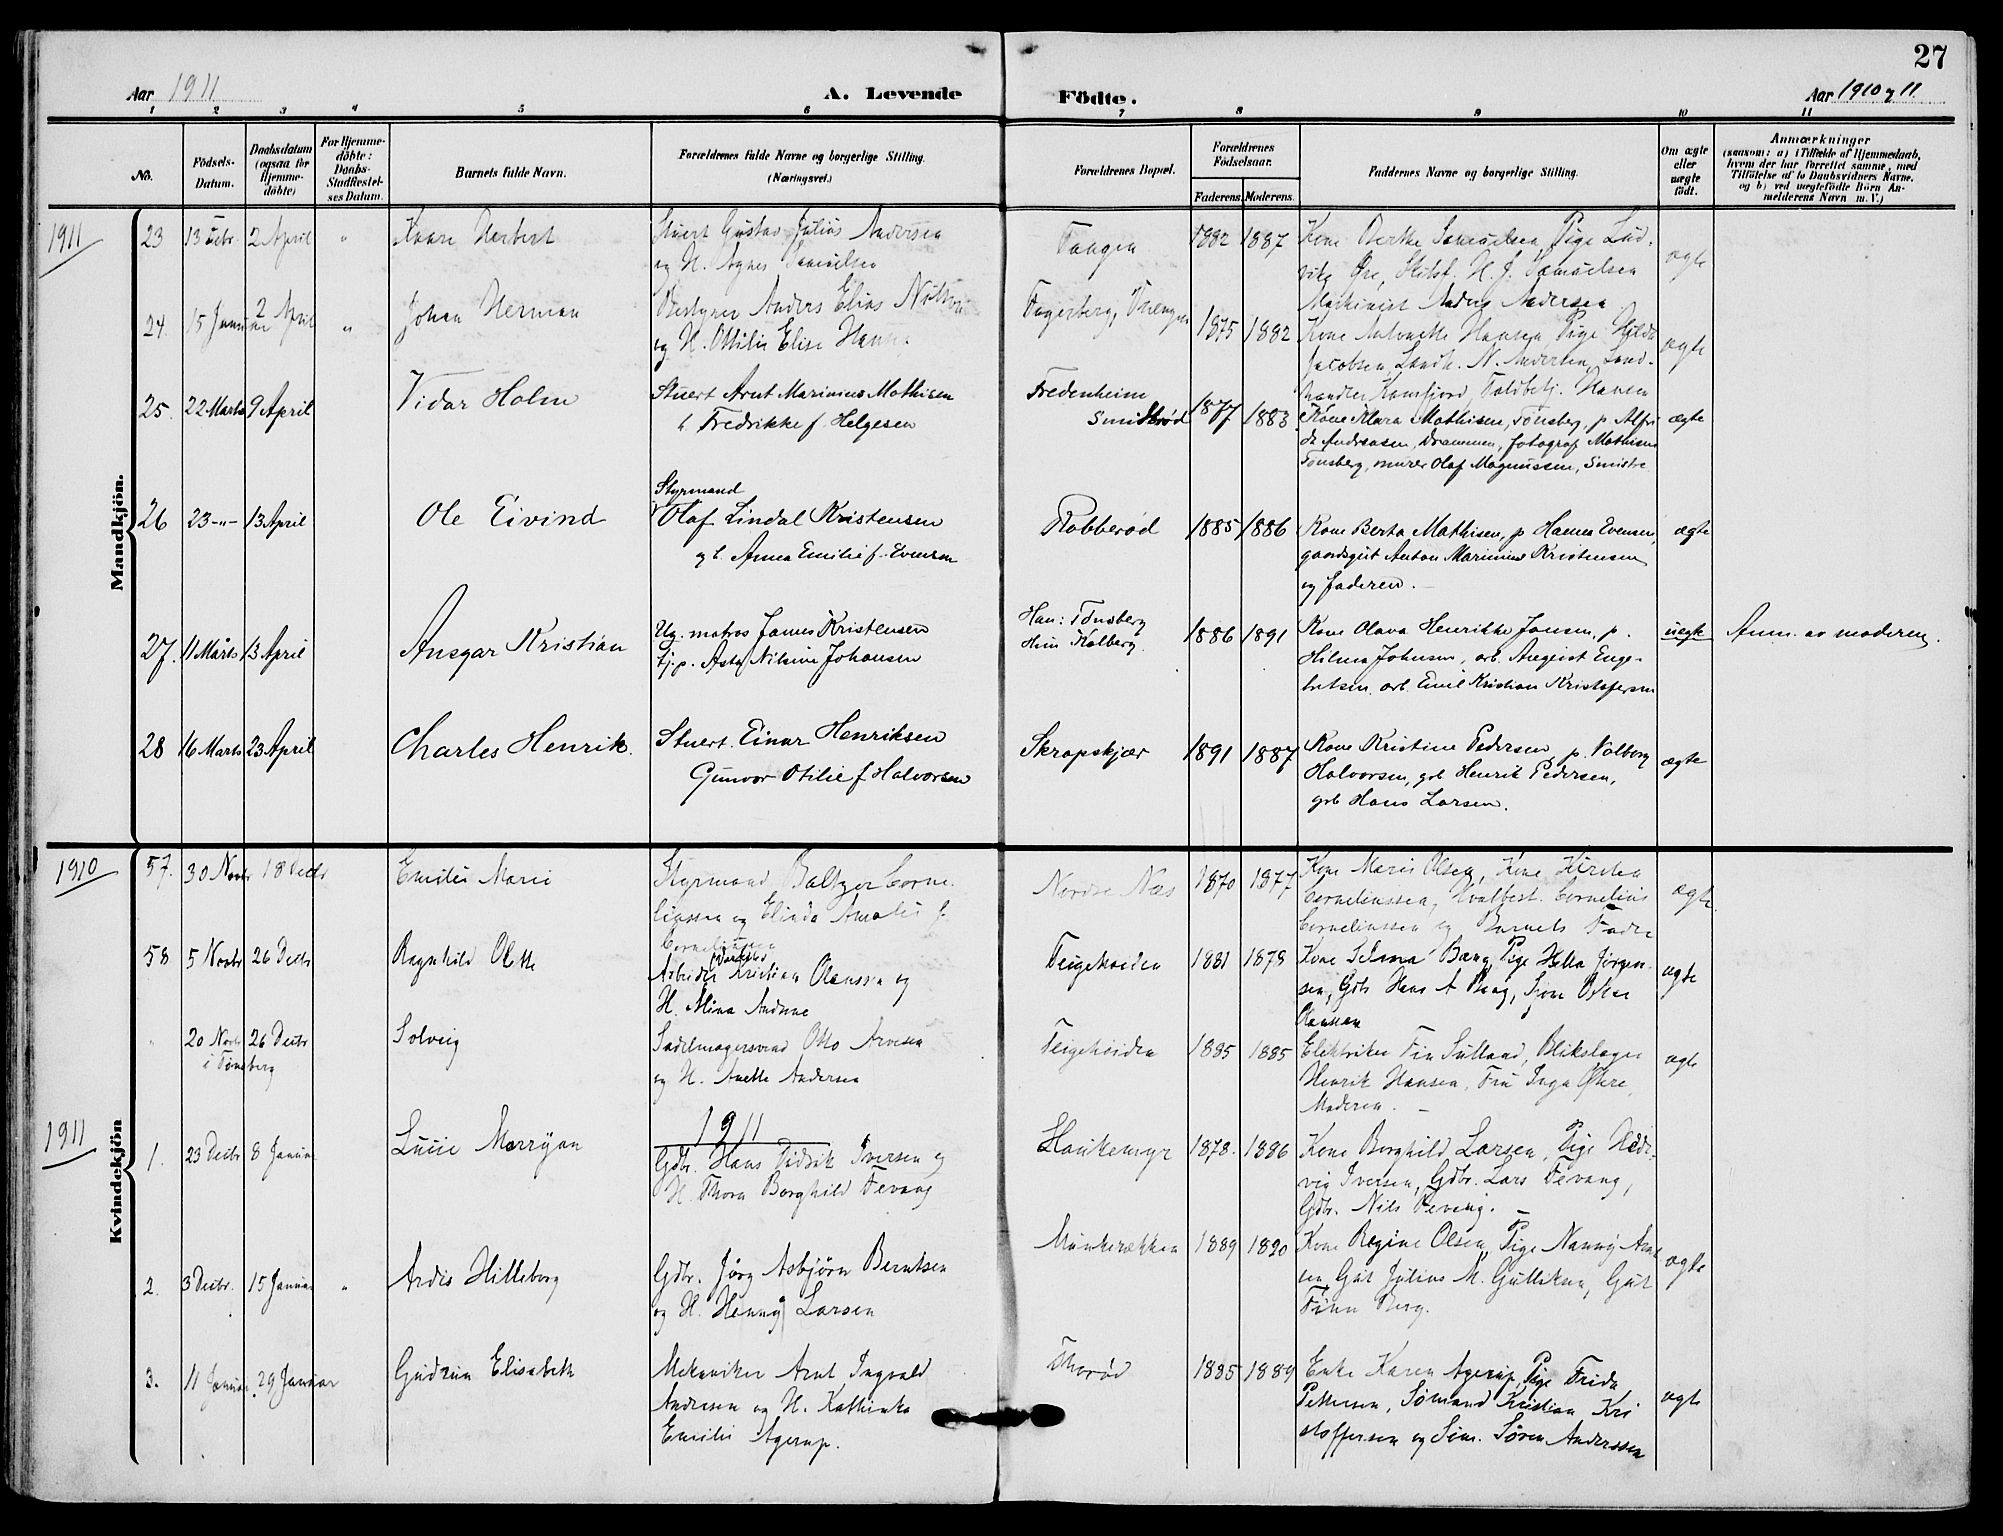 27
Aar 1911
A. Levende Födte.
Aar 1910 og 11
1 2 3 4 5 6 7 8 9 10 11
No.
Födsels-Datum.
Daabsdatum (ogsaa for Hjemme-döbte)
For Hjemme-döbte: Daabs-Stadfæstel-ses Datum.
Barnets fulde Navn.
Forældrenes fulde Navne og borgerlige Stilling. (Næringsvei.)
Forældrenes Bopæl.
Forældrenes Födselsaar.
Faderens. Moderens.
Faddernes Navne og borgerlige Stilling.
Om ægte eller uægte födt.
Anmærkninger (saasom: a) i Tilfælde af Hjemmedaab, hvem der har forrettet samme, med Tilföielse af to Daabsvidners Navne, og b) ved uægtefödte Börn An-melderens Navn m. V.)
Mandkjön.
1911
23 13 Febr. 2 April " Kaare Herbert
Stuert Gustav Julius Andersen
og H. Agnes Samuelsen
Tangen 1882 1887
Kone Berthe Samuelsen, Pige Lud-
vike Øre, Skibsf. H. J. Samuelsen
Maskinist Anders Andersen
ægte
24 15 Januar 2 April " Johan Herman
Bestyrer Anders Elias
og H. Ottilie Elise
Fagerberg, 1875 1882
Kone Antonette Hansen, Pige
Jacobsen, Landh. N. Andersen, Land-
handler Kamfjord, Toldbetj. Hansen
ægte
25. 22 Marts 9 April Vidar Holm
Stuert Arnt Marinius Mathisen
h. Fredrikke f. Helgesen
Fredenheim
Smidsrød 1877 1883
Kone Klara Mathisen, Tønsberg, p. Alfri
da Andreasen, Drammen, fotograf Mathisen
Tønsberg, murer Olaf Magnussen, Smistr.
ægte
26 23-"- 13 April Ole Eivind
Styrmand
Olaf Lindal Kristensen
og h. Anna Emilie f. Evensen
Robberød 1885 1886
Kone Berta Mathisen, p Hanna Evensen,
gaardsgut Anton Marinius Kristensen
og faderen.
ægte
27. 11 Marts 13 April Ansgar Kristian
Ug. matros James Kristensen
Tj. p. Asta Nilsine Johansen
Han: Tønsberg
Hun: Kolberg 1886 1891
Kone Olava Henrikke Jansen, p.
Hilma Johnsen, arb. August Enge-
bretsen, arb. Emil Kristian Kristofersen
uegte
Anm. av moderen.
28 16 Marts 23 April Charles Henrik.
Stuert. Einar Henriksen
Gunvor Otilie f Halvorsen
Skropskjær 1891 1887
Kone Kristine Pedersen, p. Valborg
Halvorsen, grb Henrik Pedersen,
grb Hans Larsen.
ægte
Kvindekjön
1910
57. 30 Novbr 18 Decbr Emilie Marie
Styrmand Baltzer Corne-
liussen og Elinda Amalie f.
Corneliussen
Nordre Næs 1870 1877
Kone Marie Olsen, Kone Kirsten
Corneliussen, Hvalbest. Cornelius
Corneliussen og Barnets Fader
ægte
58 5 Novbr 26 Decbr Ragnhild Olette
Arbeider Kristian Olaussen og
H. Mina Andrine
Teigehøiden 1881 1878
Kone Selma Bang, Pige Hella Jørgen-
sen, Gdb Hans A Bang, Tjener Oskar
Olaussen
ægte
20 Novbr i Tønsberg 26 Decbr Solveig
Sadelmagersvend Otto Arvesen
og H. Anette Andersen
Teigehøiden 1885 1885
Elektriker Finn Sulland, Blikslager
Henrik Hansen, Fru Inga Østre,
Moderen.
ægte
1911
1911
1. 23 Decbr 8 Januar Lucie Marryan
Gdbr. Hans Didrik Iversen og
H. Thora Borghild Fevang
Haukemyr 1878. 1886
Kone Borghild Larsen, Pige Hed-
vig Iversen, Gdbr. Lars Fevang,
Gdbr. Nils Fevang.
2. 3 Decbr. 15 Januar " Ardis Hilleborg
Gdbr. Jørg Asbjørn Berntsen
og H. Henny Larsen
Munkerækken 1889 1890
Kone Regine Olsen, Pige Nanny Arnt
sen, Gut Julius M. Gulliksen, Gut
Finn Berg.
ægte
3. 11 Januar 29 Januar Gudrun Elisabeth
Mekaniker Arnt Ingvald
Andersen og H. Kathinka
Emilie Agerup.
Thorød 1885 1889
Enke Karen Agerup, Pige Frida
Pettersen, Sømand Kristian Kri
stoffersen og Søm. Søren Anderssen
ægte